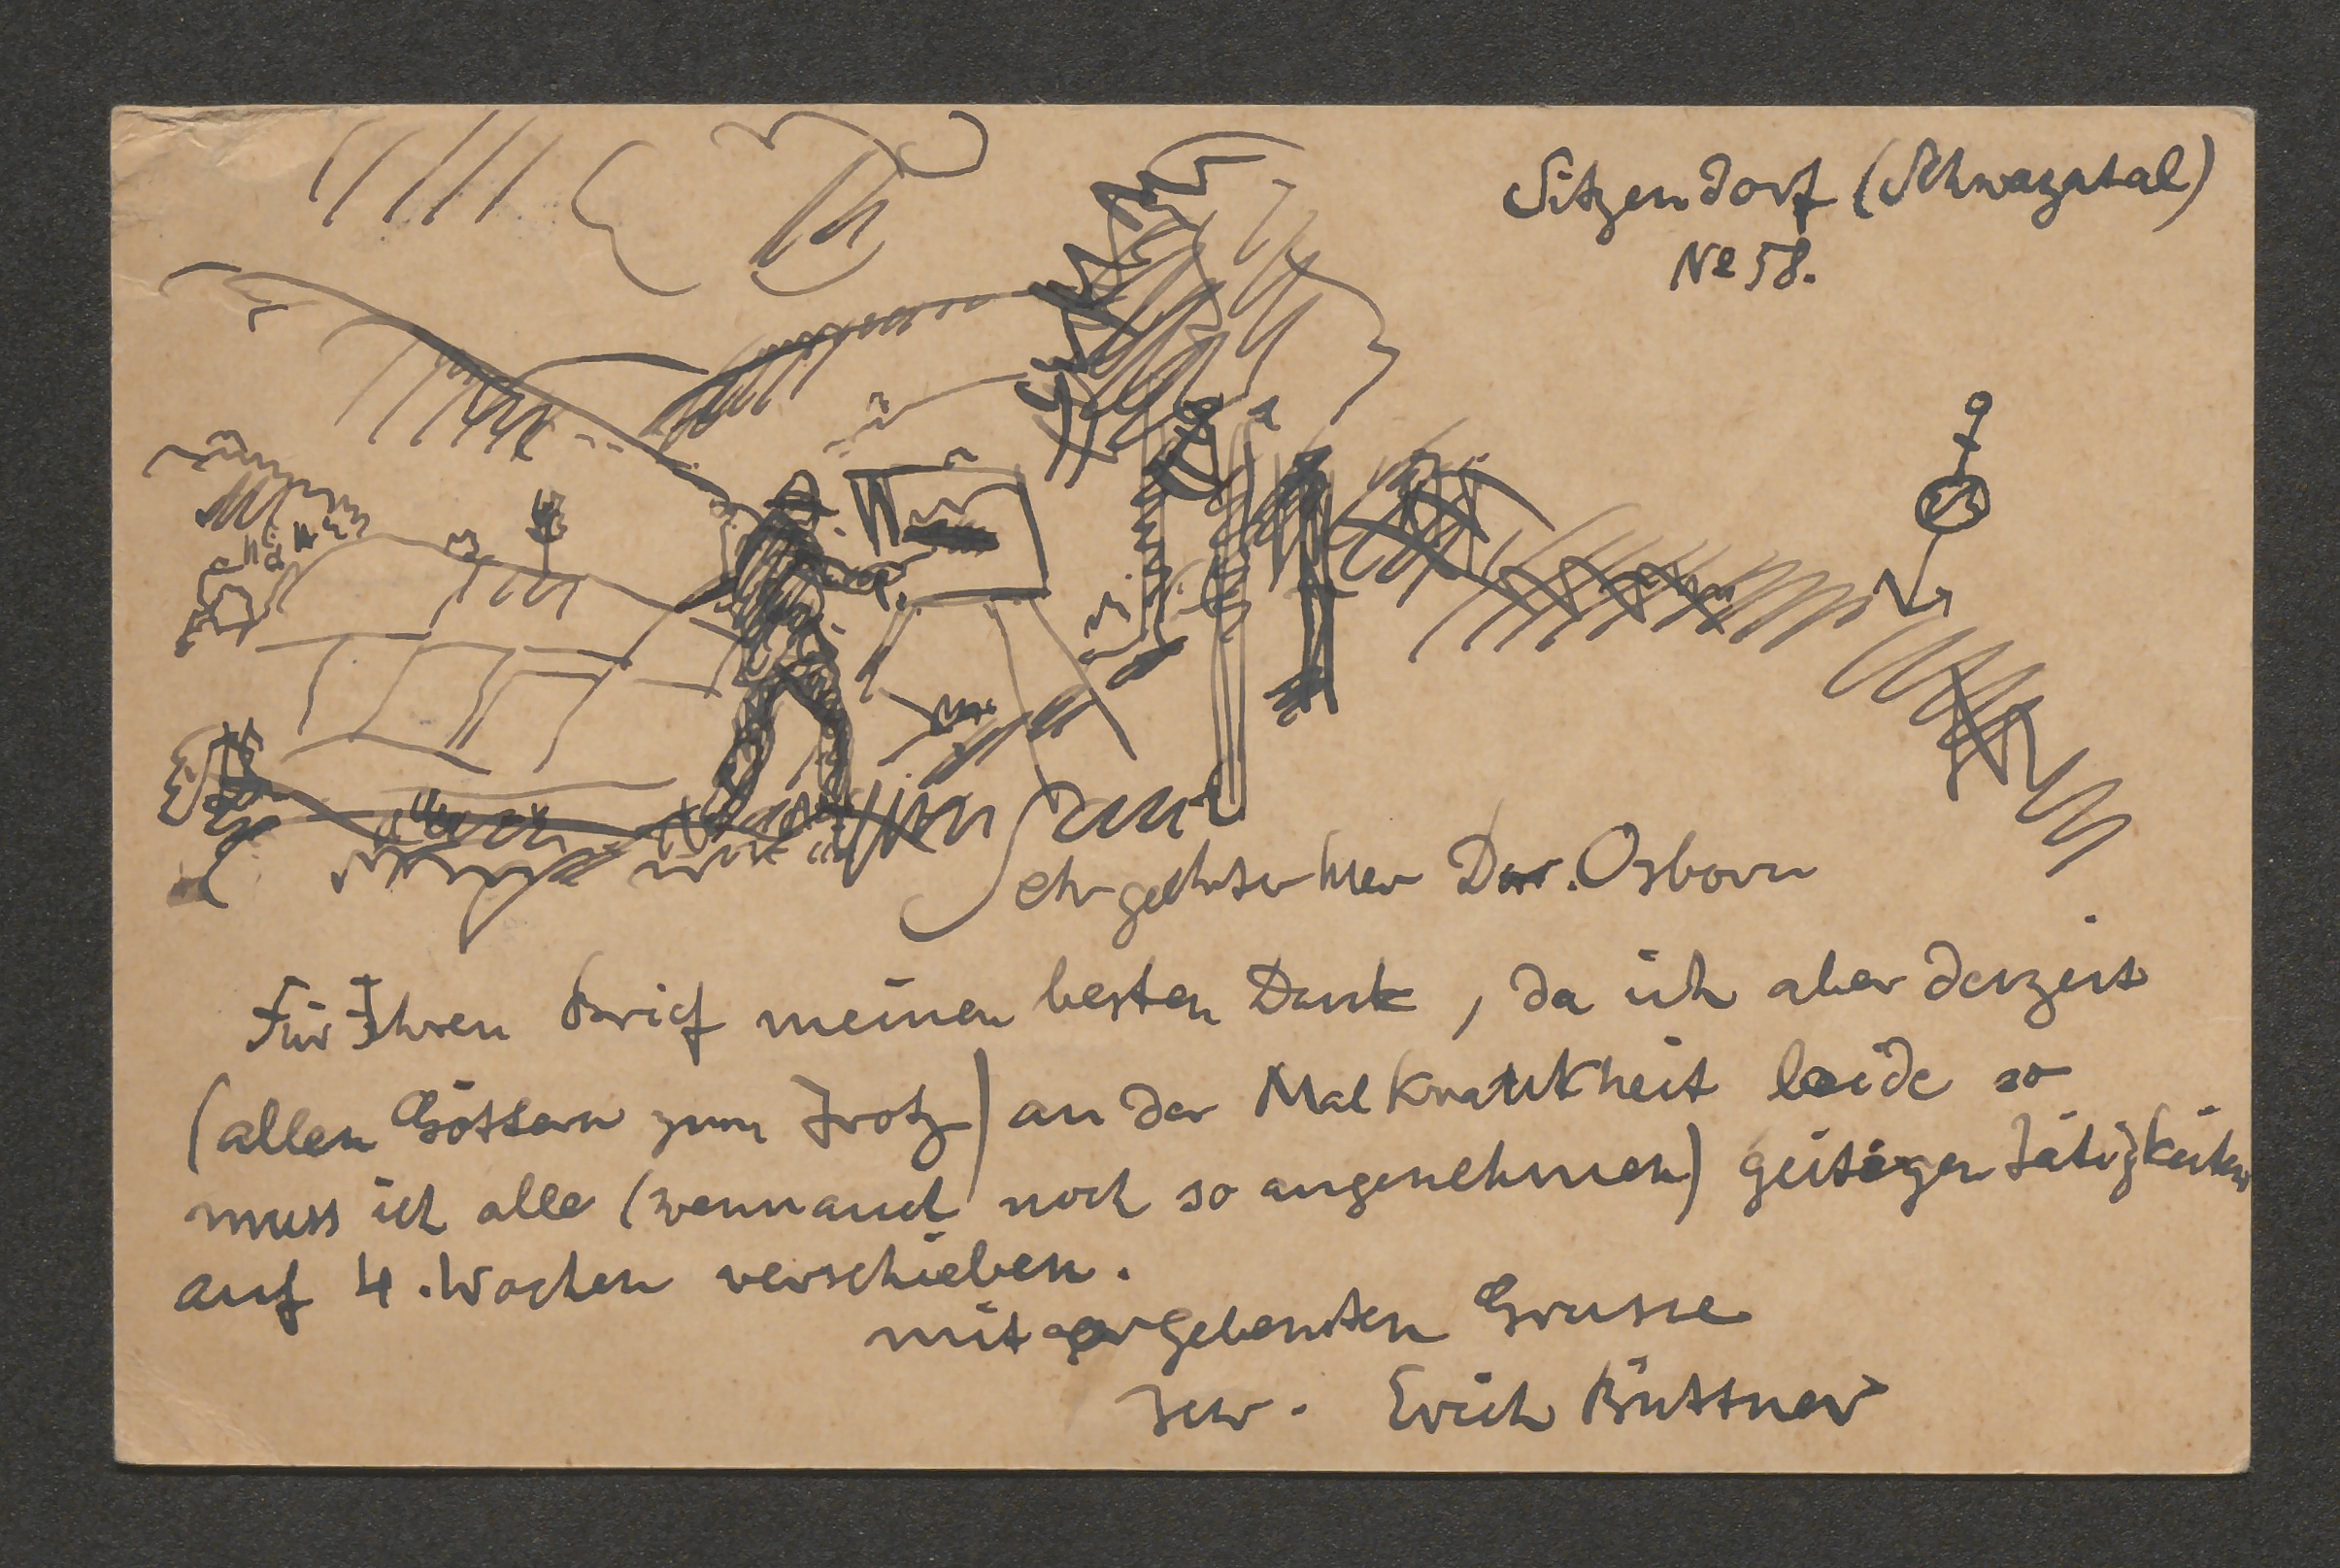 Sitzendorf (Schwarzatal)
№ 58.
Sehr geehrter Herr Dr. Osborn
Für Ihren Brief meinen besten Dank, da ich aber derzeit
(allen Göttern zum Trotz) an der Malkrankheit leide so
muss ich alle (wennauch noch so angenehmen) geistigen Tätigkeiten
auf 4. Wochen verschieben.
mit ergebensten Grusse
Ihr. Erich Büttner